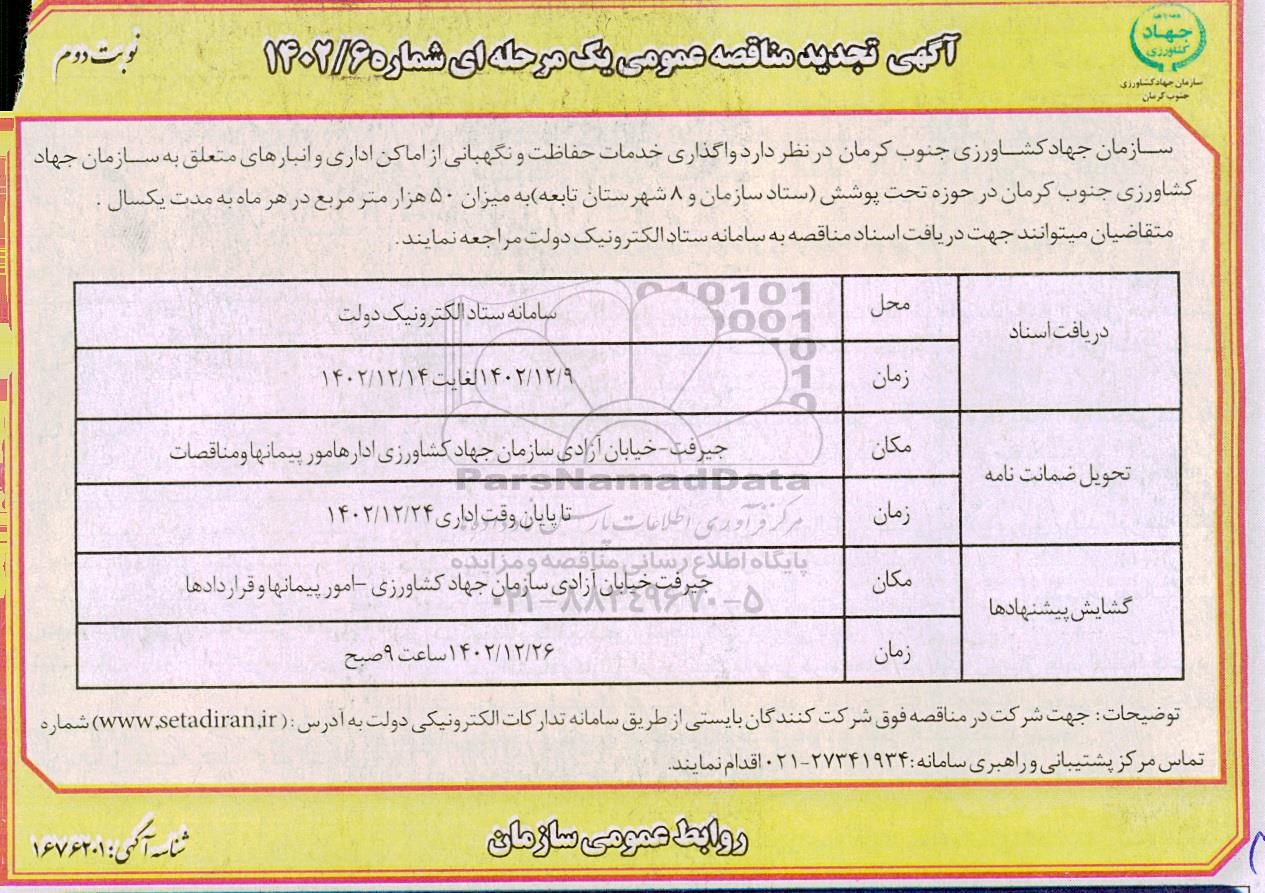 جهاد
کشاورزی
سازمان جهاد کشاورزی
جنوب کرمان
آگهی تجدید مناقصه عمومی یک مرحله ای شماره ۱۴۰۲/۶
نوبت دوم
سازمان جهاد کشاورزی جنوب کرمان در نظر دارد واگذاری خدمات حفاظت و نگهبانی از اماکن اداری و انبارهای متعلق به سازمان جهاد
کشاورزی جنوب کرمان در حوزه تحت پوشش (ستاد سازمان و ۸ شهرستان تابعه)به میزان ۵۰ هزار متر مربع در هر ماه به مدت یکسال .
متقاضیان میتوانند جهت دریافت اسناد مناقصه به سامانه ستاد الکترونیک دولت مراجعه نمایند.
دریافت اسناد
محل
سامانه ستاد الکترونیک دولت
زمان
۱۴۰۲/۱۲/۹لغایت ۱۴۰۲/۱۲/۱۴
تحویل ضمانت نامه
مکان
جیرفت-خیابان آزادی سازمان جهاد کشاورزی ادارهامور پیمانهاومناقصات
زمان
تا پایان وقت اداری ۱۴۰۲/۱۲/۲۴
گشایش پیشنهادها
مکان
جیرفت خیابان آزادی سازمان جهاد کشاورزی -امور پیمانها و قراردادها
زمان
۱۴۰۲/۱۲/۲۶ساعت ۹صبح
ParsNamadData
پایگاه اطلاع رسانی مناقصه و مزایده
۰۲۱-۸۸۳۴۹۶۷۰-۵
توضیحات: جهت شرکت در مناقصه فوق شرکت کنندگان بایستی از طریق سامانه تدارکات الکترونیکی دولت به آدرس :( www,setadiran,ir) شماره
تماس مرکز پشتیبانی و راهبری سامانه :۲۷۳۴۱۹۳۴-۰۲۱ اقدام نمایند.
روابط عمومی سازمان
شناسه آگهی: ۱۶۷۶۲۰۱